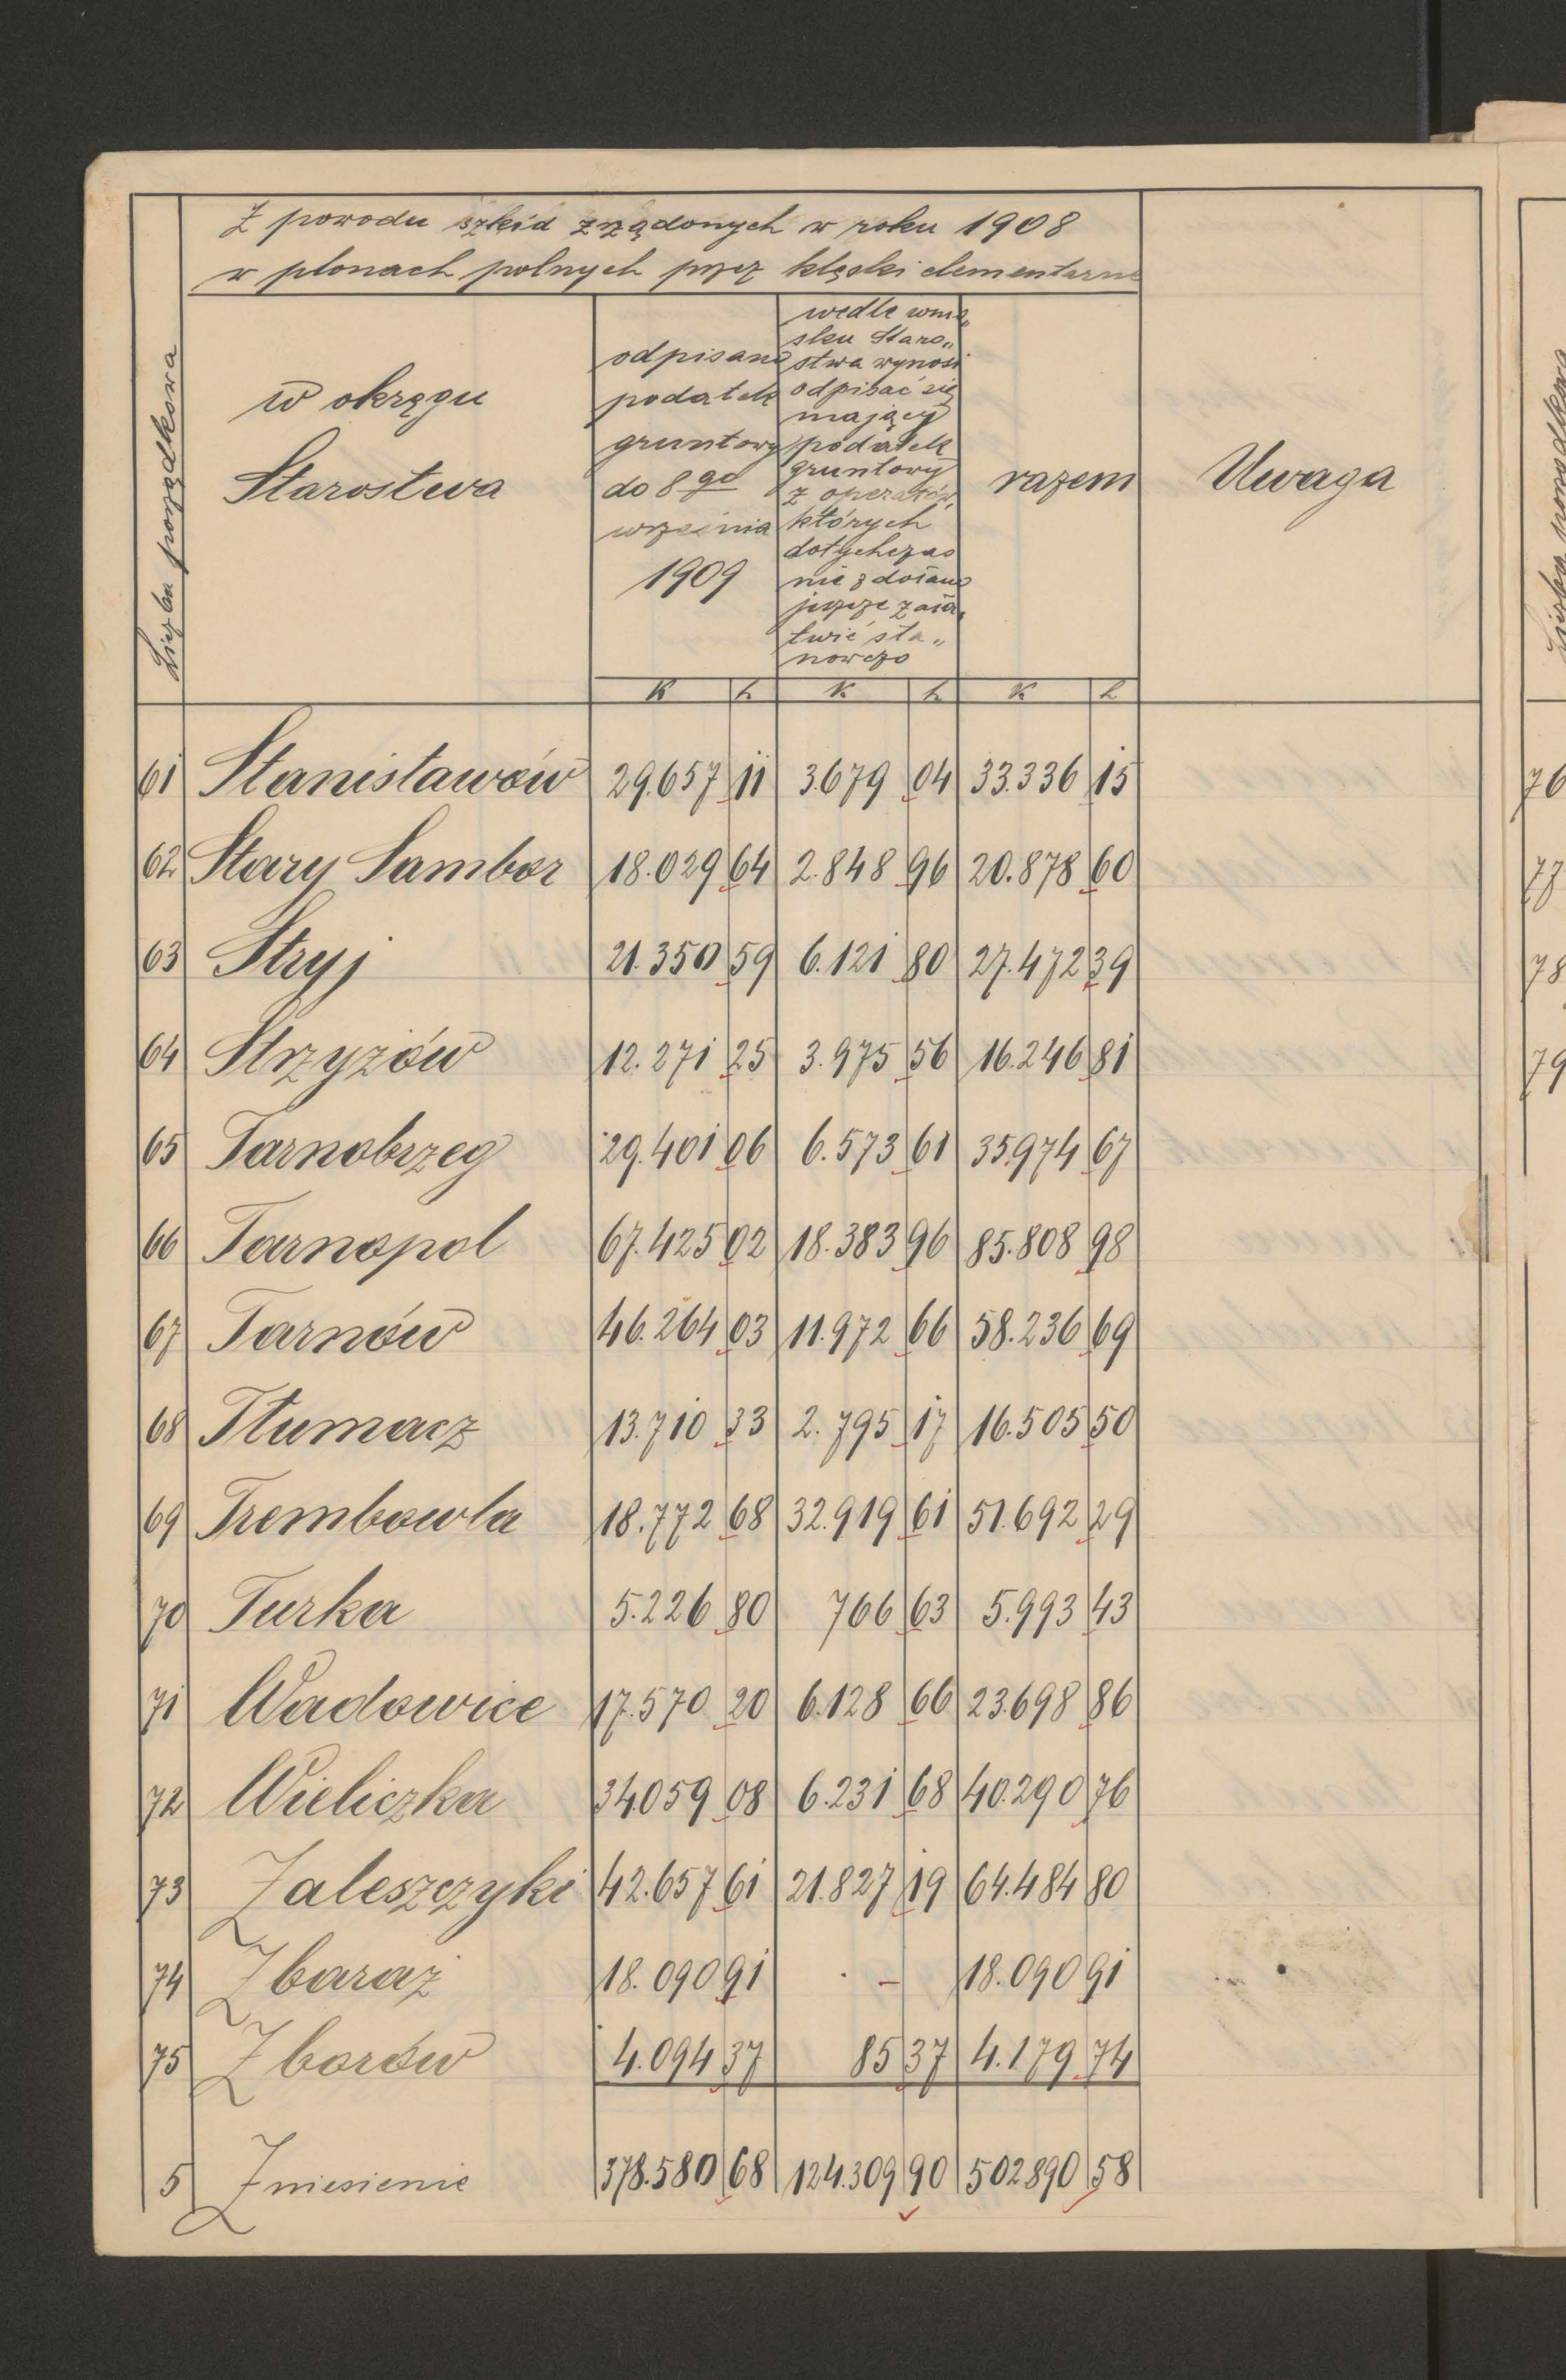 Z powodu szkód zrządonych w roku 1908
w plonach polnych przez klęski elementarne
Liczba porządkowa
w okręgu
Starostwa
odpisano
podatek
gruntowy
do 8go
września
1909
wedle wnio„
sku Staro„
stwa wynosi
odpisać się
mający
podatek
gruntowy
z operatów,
których
dotychczas
nie zdołano
jeszcze zała„
twić sta„
nowczo
razem
Uwaga
K h K h K h
61 Stanisławów 29.657 11 3.679 04 33.336 15
62 Stary Sambor 18.029 64 2.848 96 20.878 60
63 Stryj 21.350 59 6.121 80 27.472 39
64 Strzyżów 12.271 25 3.975 56 16.246 81
65 Tarnobrzeg 29.401 06 6.573 61 35.974 67
66 Tarnopol 67.425 02 18.383 96 85.808 98
67 Tarnów 46.264 03 11.972 66 58.236 69
68 Tłumacz 13.710 33 2.795 17 16.505 50
69 Trembowla 18.772 68 32.919 61 51.692 29
70 Turka 5.226 80 766 63 5.993 43
71 Wadowice 17.570 20 6.128 66 23.698 86
72 Wieliczka 34.059 08 6.231 68 40.290 76
73 Zaleszczyki 42.657 61 21.827 19 64.484 80
74 Zbaraż 18.090 91 . – 18.090 91
75 Zborów 4.094 37 85 37 4.179 74
5 Zniesienie 378.580 68 124.309 90 502890 58
76
77
78
79